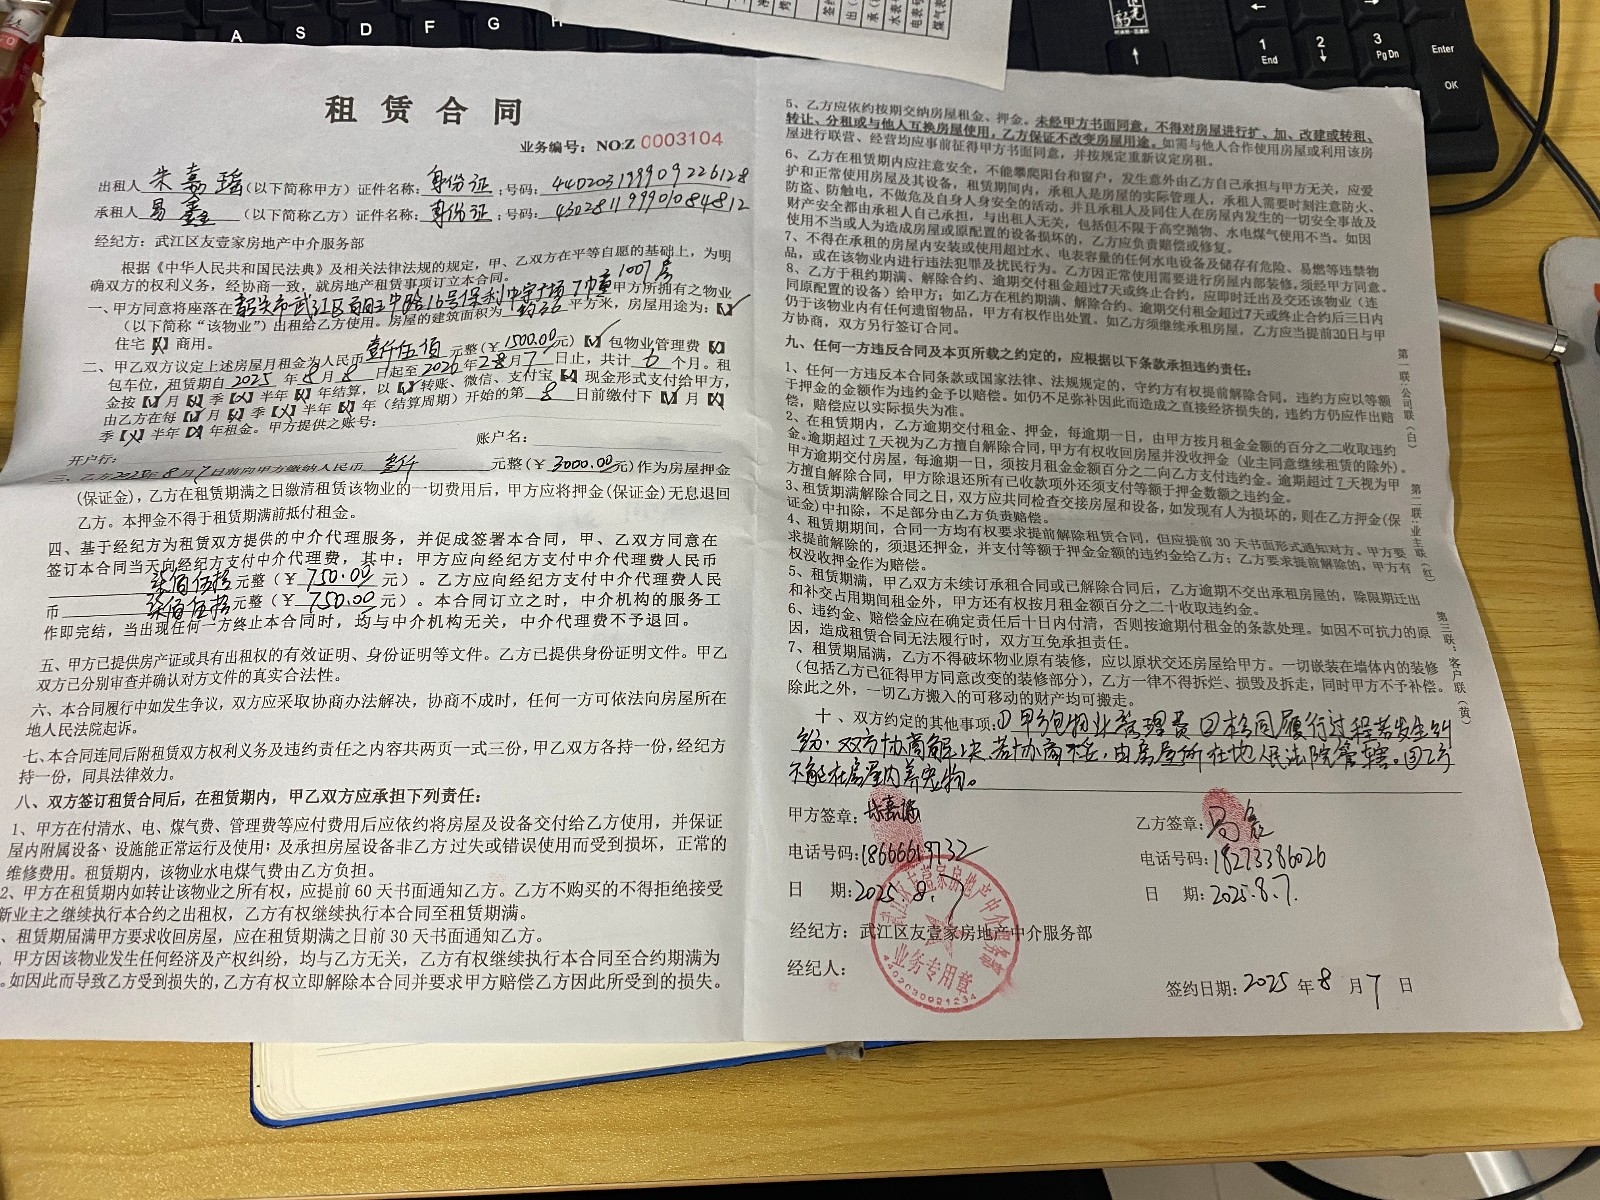 A S D F G H
1 End
2
3 Pg Dn
Enter
OK
租赁合同
业务编号：NO:Z 0003104
出租人 朱嘉瑶 (以下简称甲方) 证件名称: 身份证 ;号码: 440203199909226128
承租人 易鑫 (以下简称乙方) 证件名称: 身份证 ;号码: 430281199901084812
经纪方: 武江区友壹家房地产中介服务部
根据《中华人民共和国民法典》及相关法律法规的规定，甲、乙双方在平等自愿的基础上，为明
确双方的权利义务，经协商一致，就房地产租赁事项订立本合同。
一、甲方同意将座落在韶关市武江区百旺中路16号保利中宇广场7幢1007房 甲方所拥有之物业
(以下简称“该物业”) 出租给乙方使用。房屋的建筑面积为 平方米，房屋用途为:【✓】
住宅【X】商用。
二、甲乙双方议定上述房屋月租金为人民币 壹仟伍佰 元整(￥1500.00元)【✓】包物业管理费【X】
包车位，租赁期自 2025 年 8 月 8 日起至 2026 年 2 月 7 日止，共计 6 个月。租
金按【】月【】季【X】半年【】年结算，以【】转账、微信、支付宝【】现金形式支付给甲方，
由乙方在每【】月【】季【X】半年【】年 (结算周期) 开始的第 8 日前缴付下【】月【X】
季【X】半年【】年租金。甲方提供之账号:
开户行: 账户名:
三、乙方2025年8月7日前向甲方缴纳人民币 叁仟 元整(￥3000.00元)作为房屋押金
(保证金)，乙方在租赁期满之日缴清租赁该物业的一切费用后，甲方应将押金(保证金)无息退回
乙方。本押金不得于租赁期满前抵付租金。
四、基于经纪方为租赁双方提供的中介代理服务，并促成签署本合同，甲、乙双方同意在
签订本合同当天向经纪方支付中介代理费，其中：甲方应向经纪方支付中介代理费人民币
柒佰伍拾元整 (￥750.00 元)。乙方应向经纪方支付中介代理费人民
币 柒佰伍拾元整 (￥750.00 元)。本合同订立之时，中介机构的服务工
作即完结，当出现任何一方终止本合同时，均与中介机构无关，中介代理费不予退回。
五、甲方已提供房产证或具有出租权的有效证明、身份证明等文件。乙方已提供身份证明文件。甲乙
双方已分别审查并确认对方文件的真实合法性。
六、本合同履行中如发生争议，双方应采取协商办法解决，协商不成时，任何一方可依法向房屋所在
地人民法院起诉。
七、本合同连同后附租赁双方权利义务及违约责任之内容共两页一式三份，甲乙双方各持一份，经纪方
持一份，同具法律效力。
八、双方签订租赁合同后，在租赁期内，甲乙双方应承担下列责任:
1、甲方在付清水、电、煤气费、管理费等应付费用后应依约将房屋及设备交付给乙方使用，并保证
屋内附属设备、设施能正常运行及使用；及承担房屋设备非乙方过失或错误使用而受到损坏，正常的
维修费用。租赁期内，该物业水电煤气费由乙方负担。
2、甲方在租赁期内如转让该物业之所有权，应提前 60 天书面通知乙方。乙方不购买的不得拒绝接受
新业主之继续执行本合约之出租权，乙方有权继续执行本合同至租赁期满。
、租赁期届满甲方要求收回房屋，应在租赁期满之日前 30 天书面通知乙方。
甲方因该物业发生任何经济及产权纠纷，均与乙方无关，乙方有权继续执行本合同至合约期满为
。如因此而导致乙方受到损失的，乙方有权立即解除本合同并要求甲方赔偿乙方因此所受到的损失。
5、乙方应依约按期交纳房屋租金、押金。未经甲方书面同意，不得对房屋进行扩、加、改建或转租、
转让、分租或与他人互换房屋使用，乙方保证不改变房屋用途。如需与他人合作使用房屋或利用该房
屋进行联营、经营均应事前征得甲方书面同意，并按规定重新议定房租。
6、乙方在租赁期内应注意安全，不能攀爬阳台和窗户，发生意外由乙方自己承担与甲方无关，应爱
护和正常使用房屋及其设备，租赁期间内，承租人是房屋的实际管理人，承租人需要时刻注意防火、
防盗、防触电，不做危及自身人身安全的活动。并且承租人及同住人在房屋内发生的一切安全事故及
财产安全都由承租人自己承担，与出租人无关，包括但不限于高空抛物、水电煤气使用不当。如因
使用不当或人为造成房屋或原配置的设备损坏的，乙方应负责赔偿或修复。
7、不得在承租的房屋内安装或使用超过水、电表容量的任何水电设备及储存有危险、易燃等违禁物
品，或在该物业内进行违法犯罪及扰民行为。乙方因正常使用需要进行房屋内部装修，须经甲方同意。
8、乙方于租约期满、解除合约、逾期交付租金超过7天或终止合约，应即时迁出及交还该物业 (连
同原配置的设备) 给甲方；如乙方在租约期满、解除合约、逾期交付租金超过7天或终止合约后三日内
仍于该物业内有任何遗留物品，甲方有权作出处置。如乙方须继续承租房屋，乙方应当提前30日与甲
方协商，双方另行签订合同。
九、任何一方违反合同及本页所载之约定的，应根据以下条款承担违约责任:
1、任何一方违反本合同条款或国家法律、法规规定的，守约方有权提前解除合同，违约方应以等额
于押金的金额作为违约金予以赔偿。如仍不足弥补因此而造成之直接经济损失的，违约方仍应作出赔
偿，赔偿应以实际损失为准。
2、在租赁期内，乙方逾期交付租金、押金，每逾期一日，由甲方按月租金金额的百分之二收取违约
金。逾期超过7天视为乙方擅自解除合同，甲方有权收回房屋并没收押金 (业主同意继续租赁的除外)。
甲方逾期交付房屋，每逾期一日，须按月租金金额百分之二向乙方支付违约金。逾期超过7天视为甲
方擅自解除合同，甲方除退还所有已收款项外还须支付等额于押金数额之违约金。
3、租赁期满解除合同之日，双方应共同检查交接房屋和设备，如发现有人为损坏的，则在乙方押金(保
证金)中扣除，不足部分由乙方负责赔偿。
4、租赁期期间，合同一方均有权要求提前解除租赁合同，但应提前 30 天书面形式通知对方。甲方要
求提前解除的，须退还押金，并支付等额于押金金额的违约金给乙方；乙方要求提前解除的，甲方有
权没收押金作为赔偿。
5、租赁期满，甲乙双方未续订承租合同或已解除合同后，乙方逾期不交出承租房屋的，除限期迁出
和补交占用期间租金外，甲方还有权按月租金额百分之二十收取违约金。
6、违约金、赔偿金应在确定责任后十日内付清，否则按逾期付租金的条款处理。如因不可抗力的原
因，造成租赁合同无法履行时，双方互免承担责任。
7、租赁期届满，乙方不得破坏物业原有装修，应以原状交还房屋给甲方。一切嵌装在墙体内的装修
(包括乙方已征得甲方同意改变的装修部分)，乙方一律不得拆烂、损毁及拆走，同时甲方不予补偿。
除此之外，一切乙方搬入的可移动的财产均可搬走。
十、双方约定的其他事项:①甲方包物业管理费②本合同履行过程若发生纠
纷，双方协商解决，若协商不成，由房屋所在地人民法院管辖。③乙方
不能在房屋内养宠物。
甲方签章: 朱嘉瑶
乙方签章: 易鑫
电话号码:18666619732
电话号码:18273386026
日 期:2025.8.7
日 期:2025.8.7.
经纪方: 武江区友壹家房地产中介服务部
经纪人:
签约日期:2025 年 8 月 7 日
武江区友壹家房地产中介服务部
业务专用章
4402030021234
第一联:公司联(白)
第二联:业主联(红)
第三联:客户联(黄)